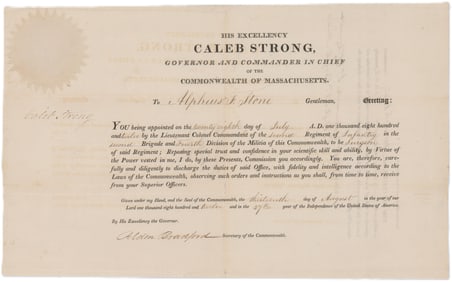 HIS EXCELLENCY
CALEB STRONG,
GOVERNOR AND COMMANDER IN CHIEF
OF THE
COMMONWEALTH OF MASSACHUSETTS.
To Alpheus F. Stone Gentleman, Greeting:
Caleb Strong
YOU being appointed on the twenty eighth day of July A. D. one thousand eight hundred
and twelve by the Lieutenant Colonel Commandant of the Regiment of Infantry in the
second Brigade and fourth Division of the Militia of this Commonwealth, to be Surgeon
of said Regiment; Reposing special trust and confidence in your scientific skill and ability, by Virtue of the
Power vested in me, I do, by these Presents, Commission you accordingly. You are, therefore, care-
fully and diligently to discharge the duties of said Office, with fidelity and intelligence according to the
Laws of the Commonwealth, observing such orders and instructions as you shall, from time to time, receive
from your Superior Officers.
Given under my Hand, and the Seal of the Commonwealth, the thirteenth day of August in the year of our
Lord one thousand eight hundred and twelve and in the 37th year of the Independence of the United States of America.
By His Excellency the Governor.
Alden Bradford Secretary of the Commonwealth.